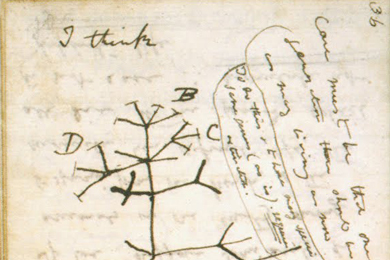 36
I think
Case must be that one
generation then should be
as many living as now
To do this & to have many species
in same genus (as is). requires
extinction.
B
C
D